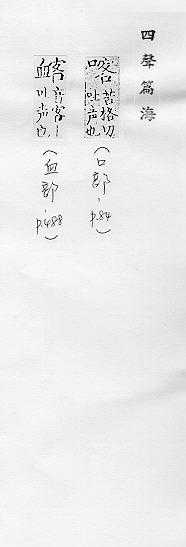 四聲篇海
喀苦格切吐声也（口部，p.84）
音客吐声也（血部，p.488）